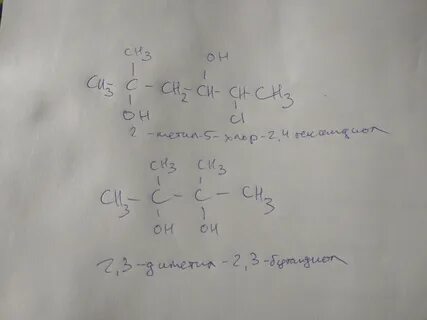 CH3 OH
CH3 - C - CH2 - CH - CH - CH3
OH Cl
2-метил-5-хлор-2,4 гександиол
CH3 CH3
CH3 - C - C - CH3
OH OH
2,3-диметил-2,3-бутандиол